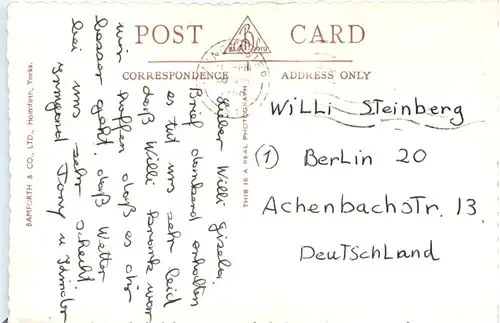 POST CARD
CORRESPONDENCE ADDRESS ONLY
BAMFORTH & CO., LTD., Holmfirth, Yorks.
THIS IS A REAL PHOTOGRAPH
Lieber Willi Gisela.
Brief dankend erhalten
es tut uns sehr leid
daß Willi krank war
wir hoffen daß es dir
besser geht. daß Wetter
bei uns sehr schlecht
Irmgard Tony u Kinder
Willi Steinberg
(1) Berlin 20
Achenbachstr. 13
Deutschland